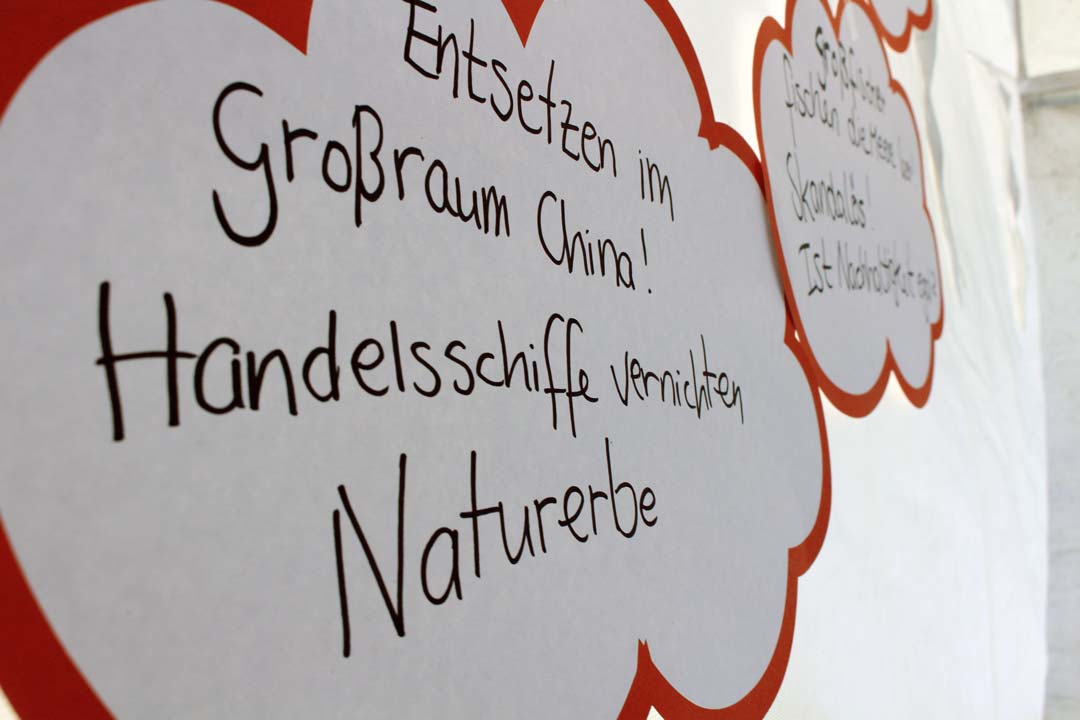 Entsetzen im
Großraum China!
Handelsschiffe vernichten
Naturerbe
Großfischer
fischen die Meere leer
Skandalös!
Ist Nachhaltigkeit